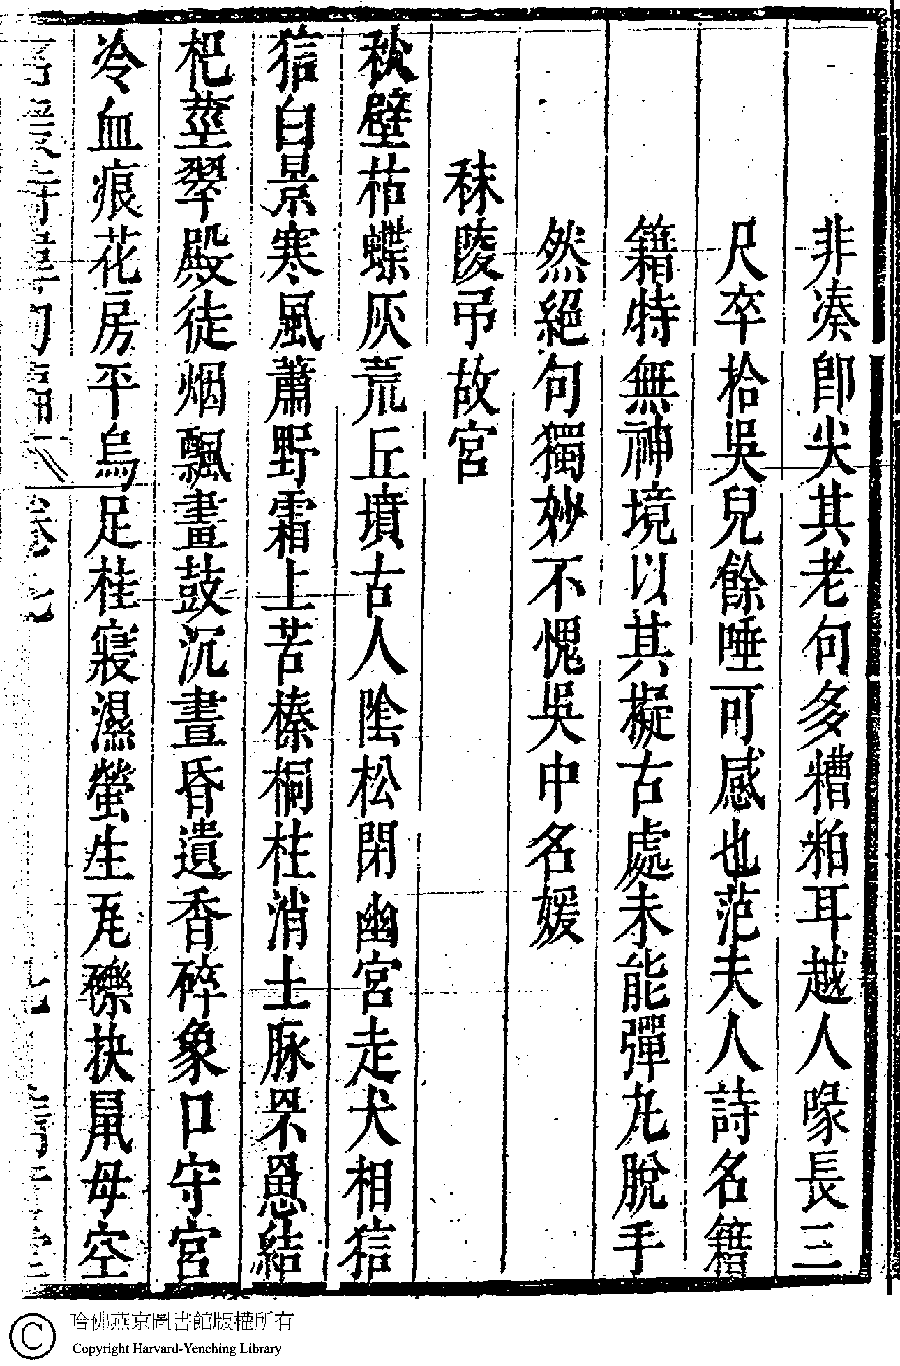 非湊卽尖其老句多糟粕耳越人喙長三
尺卒拾吳兒餘唾可感也范夫人詩名籍
籍特無神境以其擬古處未能彈丸脫手
然絕句獨妙不愧吳中名媛
秣陵弔故宮
秋壁枯蝶灰荒丘墳古人陰松閉幽宮走犬相狺
狺白景寒風蕭野霜上苦榛桐柱消土脉罘罳結
杞莖翠殿徒烟飄畫鼓沉晝昏遺香碎象口守宮
冷血痕花房平烏足桂寢濕螢生瓦礫抉鼠母空
哈佛燕京圖書館版權所有
Copyright Harvard-Yenching Library